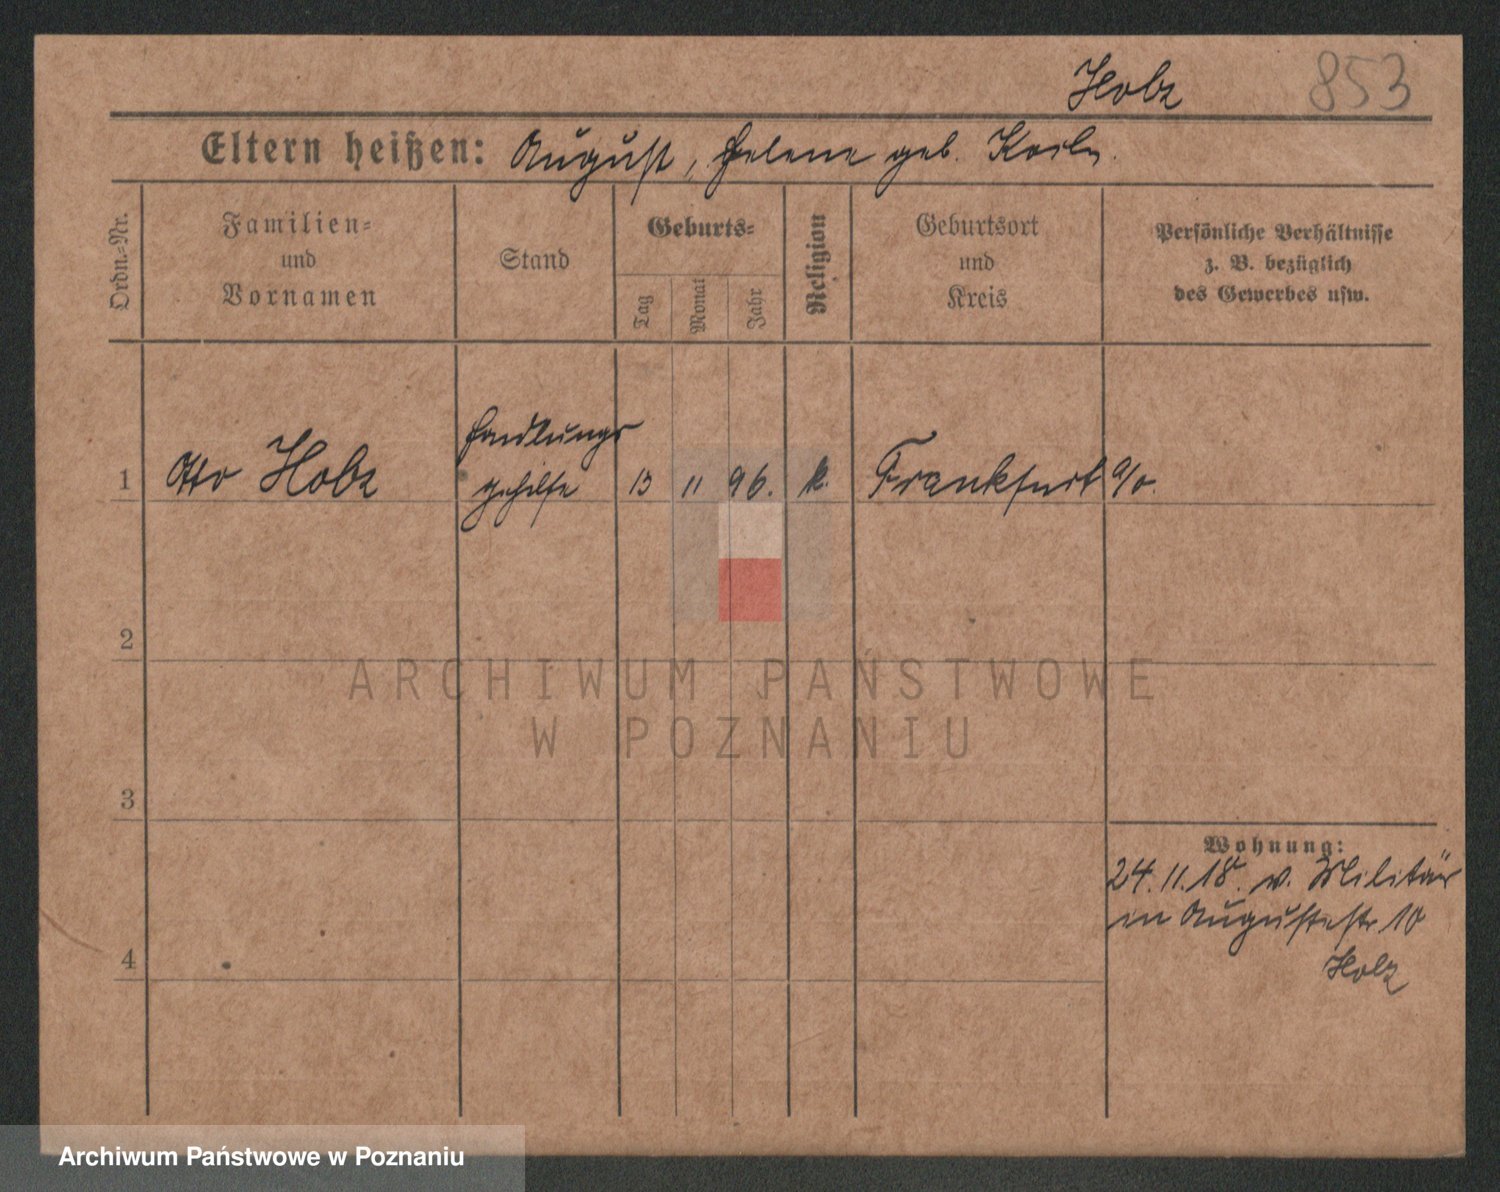 Holz
853
Eltern heißen: August, Helene geb.
Ordn.=Nr.
Familien=
und
Vornamen
Stand
Geburts=
Tag
Monat
Jahr
Religion
Geburtsort
und
Kreis
Persönliche Verhältnisse
z. B. bezüglich
des Gewerbes usw.
1
Otto Holz
Handlungs
gehilfe
13
11
96.
k.
Frankfurt a/o.
2
3
4
Wohnung:
24.11.18. v. Militär
in Augustestr 10
Holz
ARCHIWUM PAŃSTWOWE
W POZNANIU
Archiwum Państwowe w Poznaniu